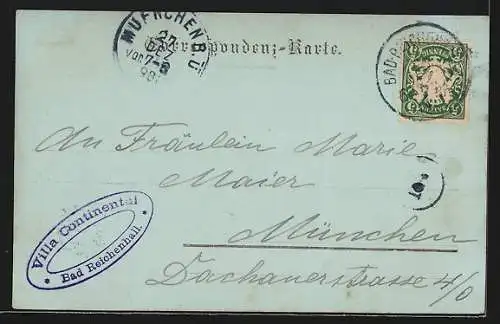 MUENCHEN B.Ü
27
DEZ
Vor. 7-8
98.
Correspondenz-Karte.
An Fräulein Marie
Maier
München
Dachauerstrasse 4/0
Villa Continental
Bad Reichenhall.